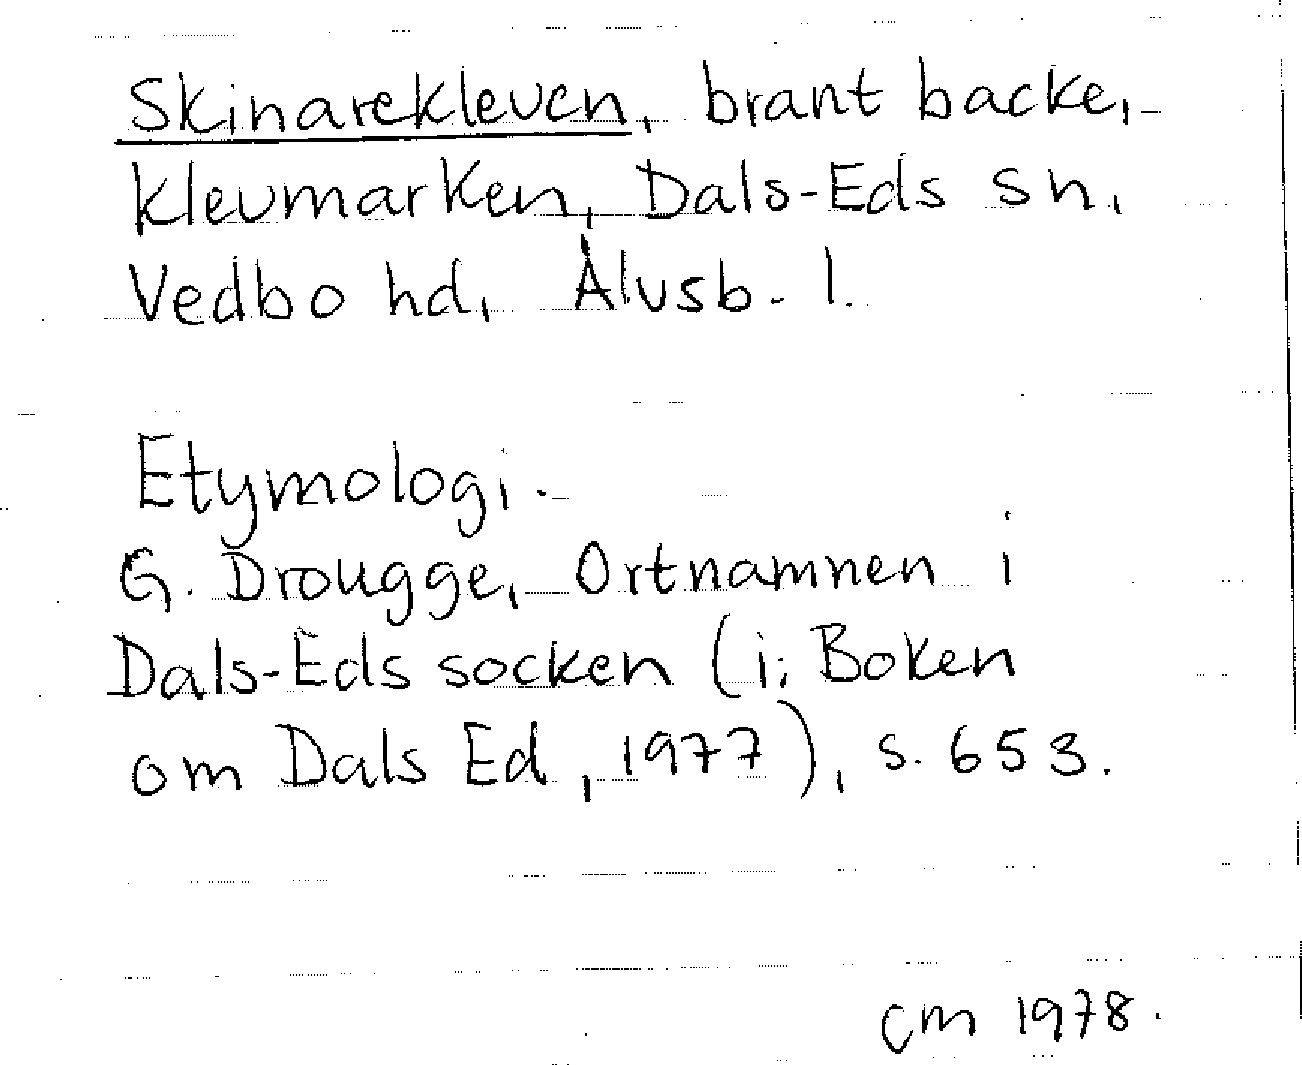 Skinarekleven, brant backe,
Klevmarken, Dals-Eds sn,
Vedbo hd, Älvsb. l.
Etymologi.
G. Drougge, Ortnamnen i
Dals-Eds socken (i: Boken
om Dals Ed, 1977), s. 653.
CM 1978.